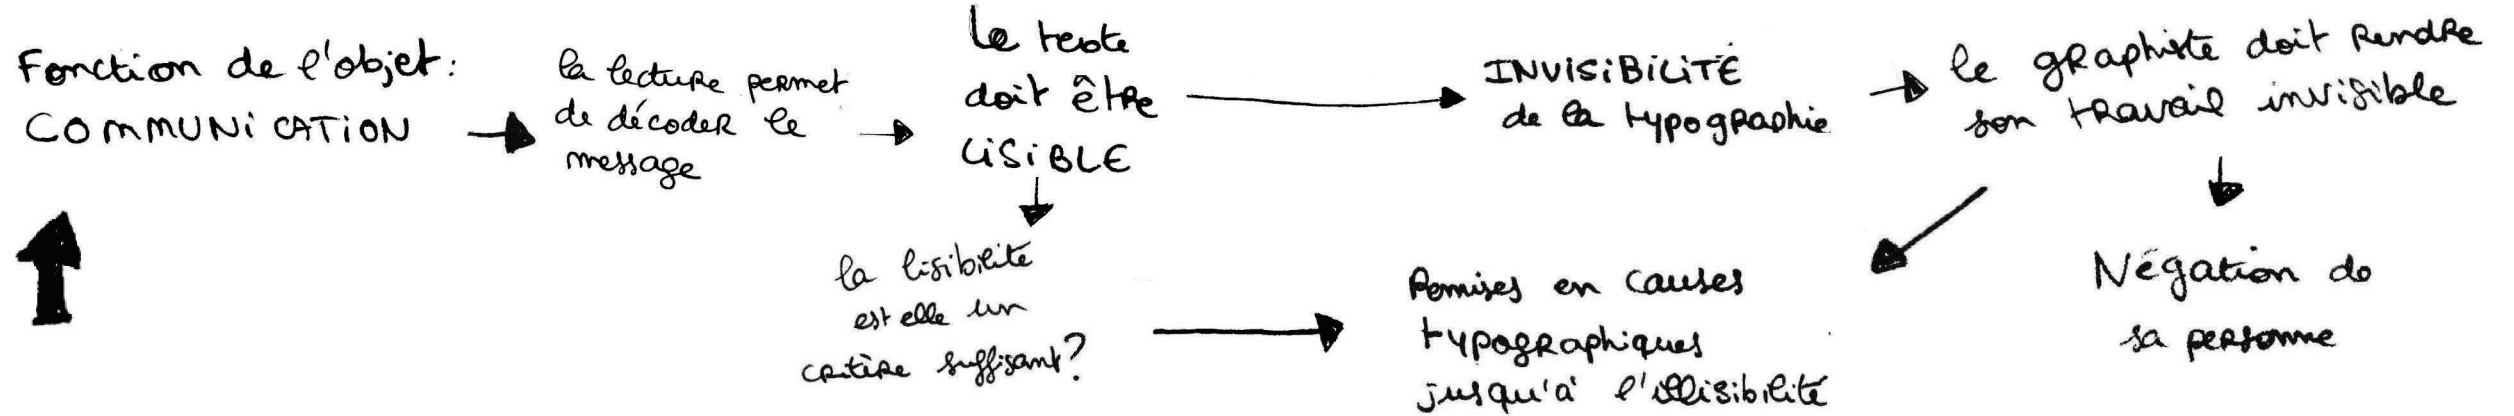 Fonction de l'objet :
COMMUNICATION
la lecture permet
de décoder le
message
le texte
doit être
LISIBLE
INVISIBILITÉ
de la typographie
le graphiste doit rendre
son travail invisible
la lisibilité
est elle un
critère suffisant ?
Remises en causes
typographiques
jusqu'à l'illisibilité
Négation de
sa personne